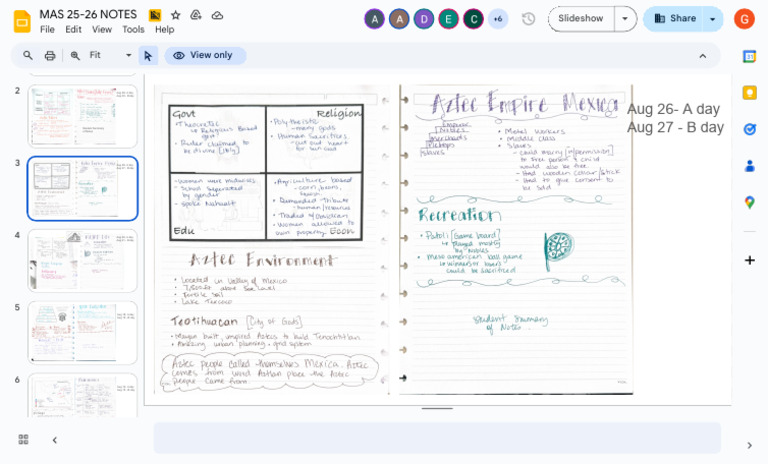 MAS 25-26 NOTES
File Edit View Tools Help
A A D E C +6
Slideshow
Share
G
Fit
View only
2
3
4
5
6
Govt
• Theocratic
↳ Religious Based
govt
• Ruler claimed to
be divine [holy]
Religion
• Polytheistic
- many gods
• Human Sacrifices
- cut out heart
for sun God
• women were midwives
• School seperated
by gender
• spoke Nahuatl
Edu
• Agriculture based
- corn, beans,
• Demanded Tribute
• Traded w/ Obsidian
• Women allowed to
own property
Econ
Aztec Environment
• Located in Valley of Mexico
• above sea level
• Fertile Soil
• Lake Texcoco
Teotihuacan [City of Gods]
• built, inspired Aztecs to build Tenochtitlan
• Amazing urban planning + grid system
Aztec people called themselves Mexica. Aztec
comes from word Aztlan place the Aztec
people came from.
Aztec Empire Mexica
Aug 26- A day
Aug 27 - B day
Emperor
Nobles
Merchants
Slaves
• Metal Workers
• Middle class
• Slaves
- could marry [w/permission]
to free person & child
would also be free
- had wooden collar/stick
- had to give consent to
be sold
Recreation
• Patoli [Game board]
↳ played mostly
by Nobles
• Meso american ball game
could be sacrificed
Student Summary
of Notes